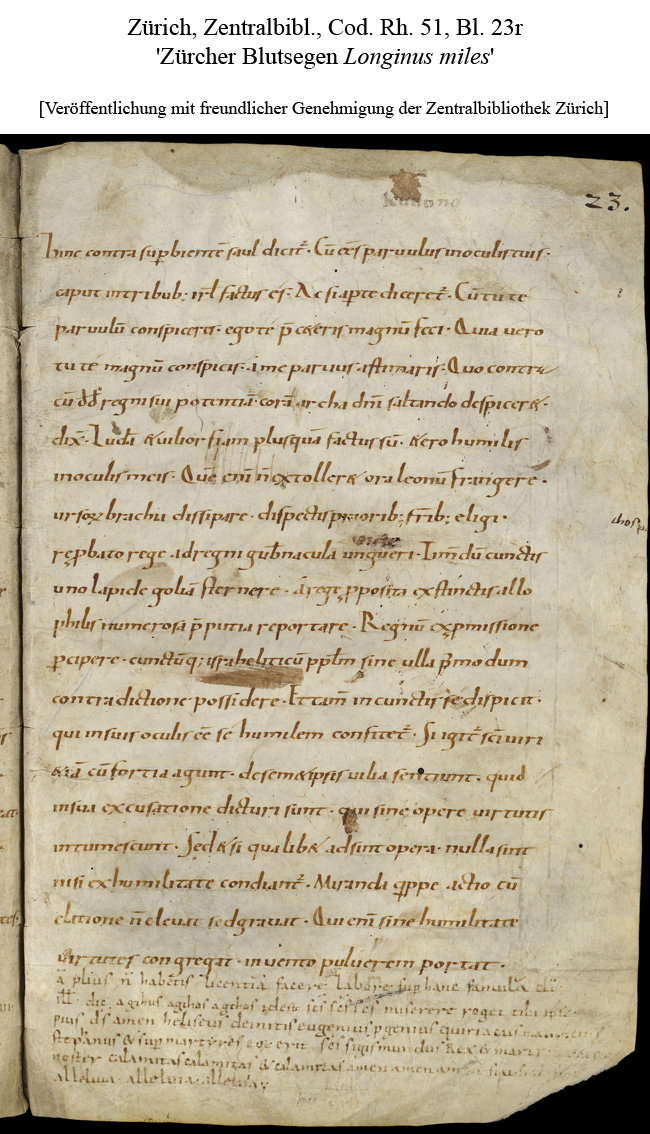 Zürich, Zentralbibl., Cod. Rh. 51, Bl. 23r
'Zürcher Blutsegen Longinus miles'
[Veröffentlichung mit freundlicher Genehmigung der Zentralbibliothek Zürich]
23.
hinc contra supbientē saul dicit̄. Cū eēs paruulus in oculis tuis.
caput in tribub; irl̄ factus es. Ac si apte diceret̄. Cū tu te
paruulū conspiceres. ego te p̄ ceteris magnū feci. Quia uero
tu te magnū conspicis. a me paruus estimaris. Quo contra
cū dd̄ regni sui potentiā. corā archa dn̄i saltando despiceret.
dix̄. Ludā & uilior fiam plusquā factus sū. & ero humilis
in oculis meis. Quē eni n̄ extolleret ora leonū frangere.
ursoꝝ brachia dissipare. despectis prioribꝫ frib; eligi.
repbato rege ad regni gubnacula ungueri. Iīmdū cunctis
uno lapide goliā sternere. a rege pposita exstinctis allo
philis numerosa p̄putia reportare. Regnū ex pmissione
pcipere. cunctūq; israheliticū pplm̄ sine ulla p̄modum
contradictione possidere. Et tam̄ in cunctis se dispicit.
qui in suis oculis eē se humilem confitet̄. Si igit̄ sc̄i uiri
& iā cū fortia agunt. de semetipsis uilia sentiunt. quid
in sua excusatione dicturi sunt. qui sine opere uirtutis
intumescunt. Sed & si qualibet adsint opera. nulla sunt
nisi ex humilitate condiant̄. Miranda qppe actio cū
elatione n̄ eleuat sed grauat. Qui eni sine humilitate
uirtutes congregat. in uento puluerem portat.
ā plius n̄ habetis licentiā facere labore sup hanc famulā dī
die agihos agihos agihos idest sc̄s sc̄s sc̄s miserere
pius dī amen heliseus eugenius
stephanus & sup martyres sc̄s sigismundus Rex & martir
noster calamitas calamitas & calamitas amen amen am
alleluia. alleluia. alleluia